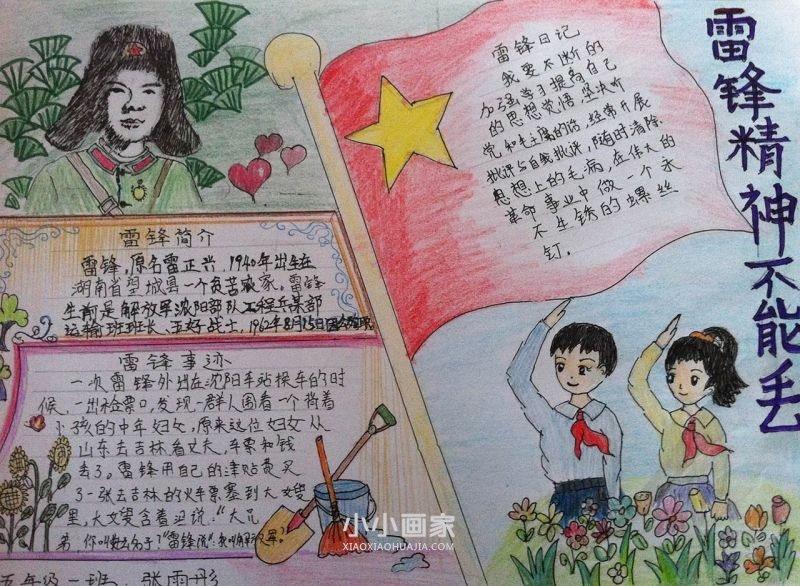 雷锋精神不能丢
雷锋日记
我要不断的
加强学习提高自己
的思想觉悟,坚决听
党和毛主席的话,经常开展
批评与自我批评,随时清除
思想上的毛病,在伟大的
革命事业中做一个永
不生铁的螺丝
钉.
雷锋简介
雷锋,原名雷正兴,1940年出生在
湖南省望城县一个贫苦农家.雷锋
生前是解放军沈阳部队工程兵某部
运输班班长、五好战士,1962年8月15日因公
雷锋事迹
一次雷锋外出在沈阳车站换车的时
候,一出检票口,发现一群人围着一个背着
小孩的中年妇女,原来这位妇女从
山东去吉林看丈夫,车票和钱
丢了。雷锋用自己的津贴费买
了一张去吉林的火车票塞到大嫂
里,大嫂含着泪说:"大兄
弟,你叫
小小画家
XIAOXIAOHUAJIA.COM
五年级一班 张雨彤